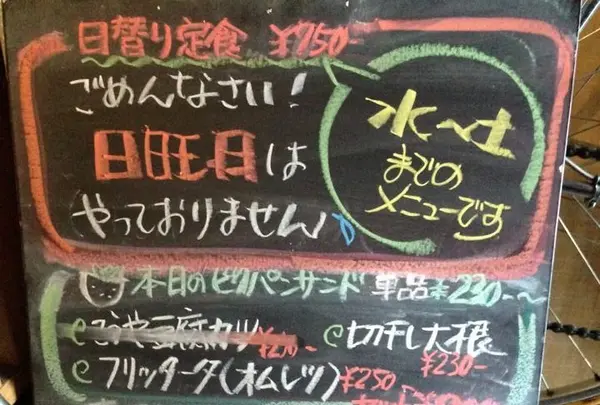 日替り定食 ¥750-
ごめんなさい!
日曜日は
やっておりません
水〜土
までの
メニューです
本日のピタパンサンド 単品 230-〜
こうや豆腐カツ
切干し大根
¥230-
フリッタータ(オムレツ) ¥250